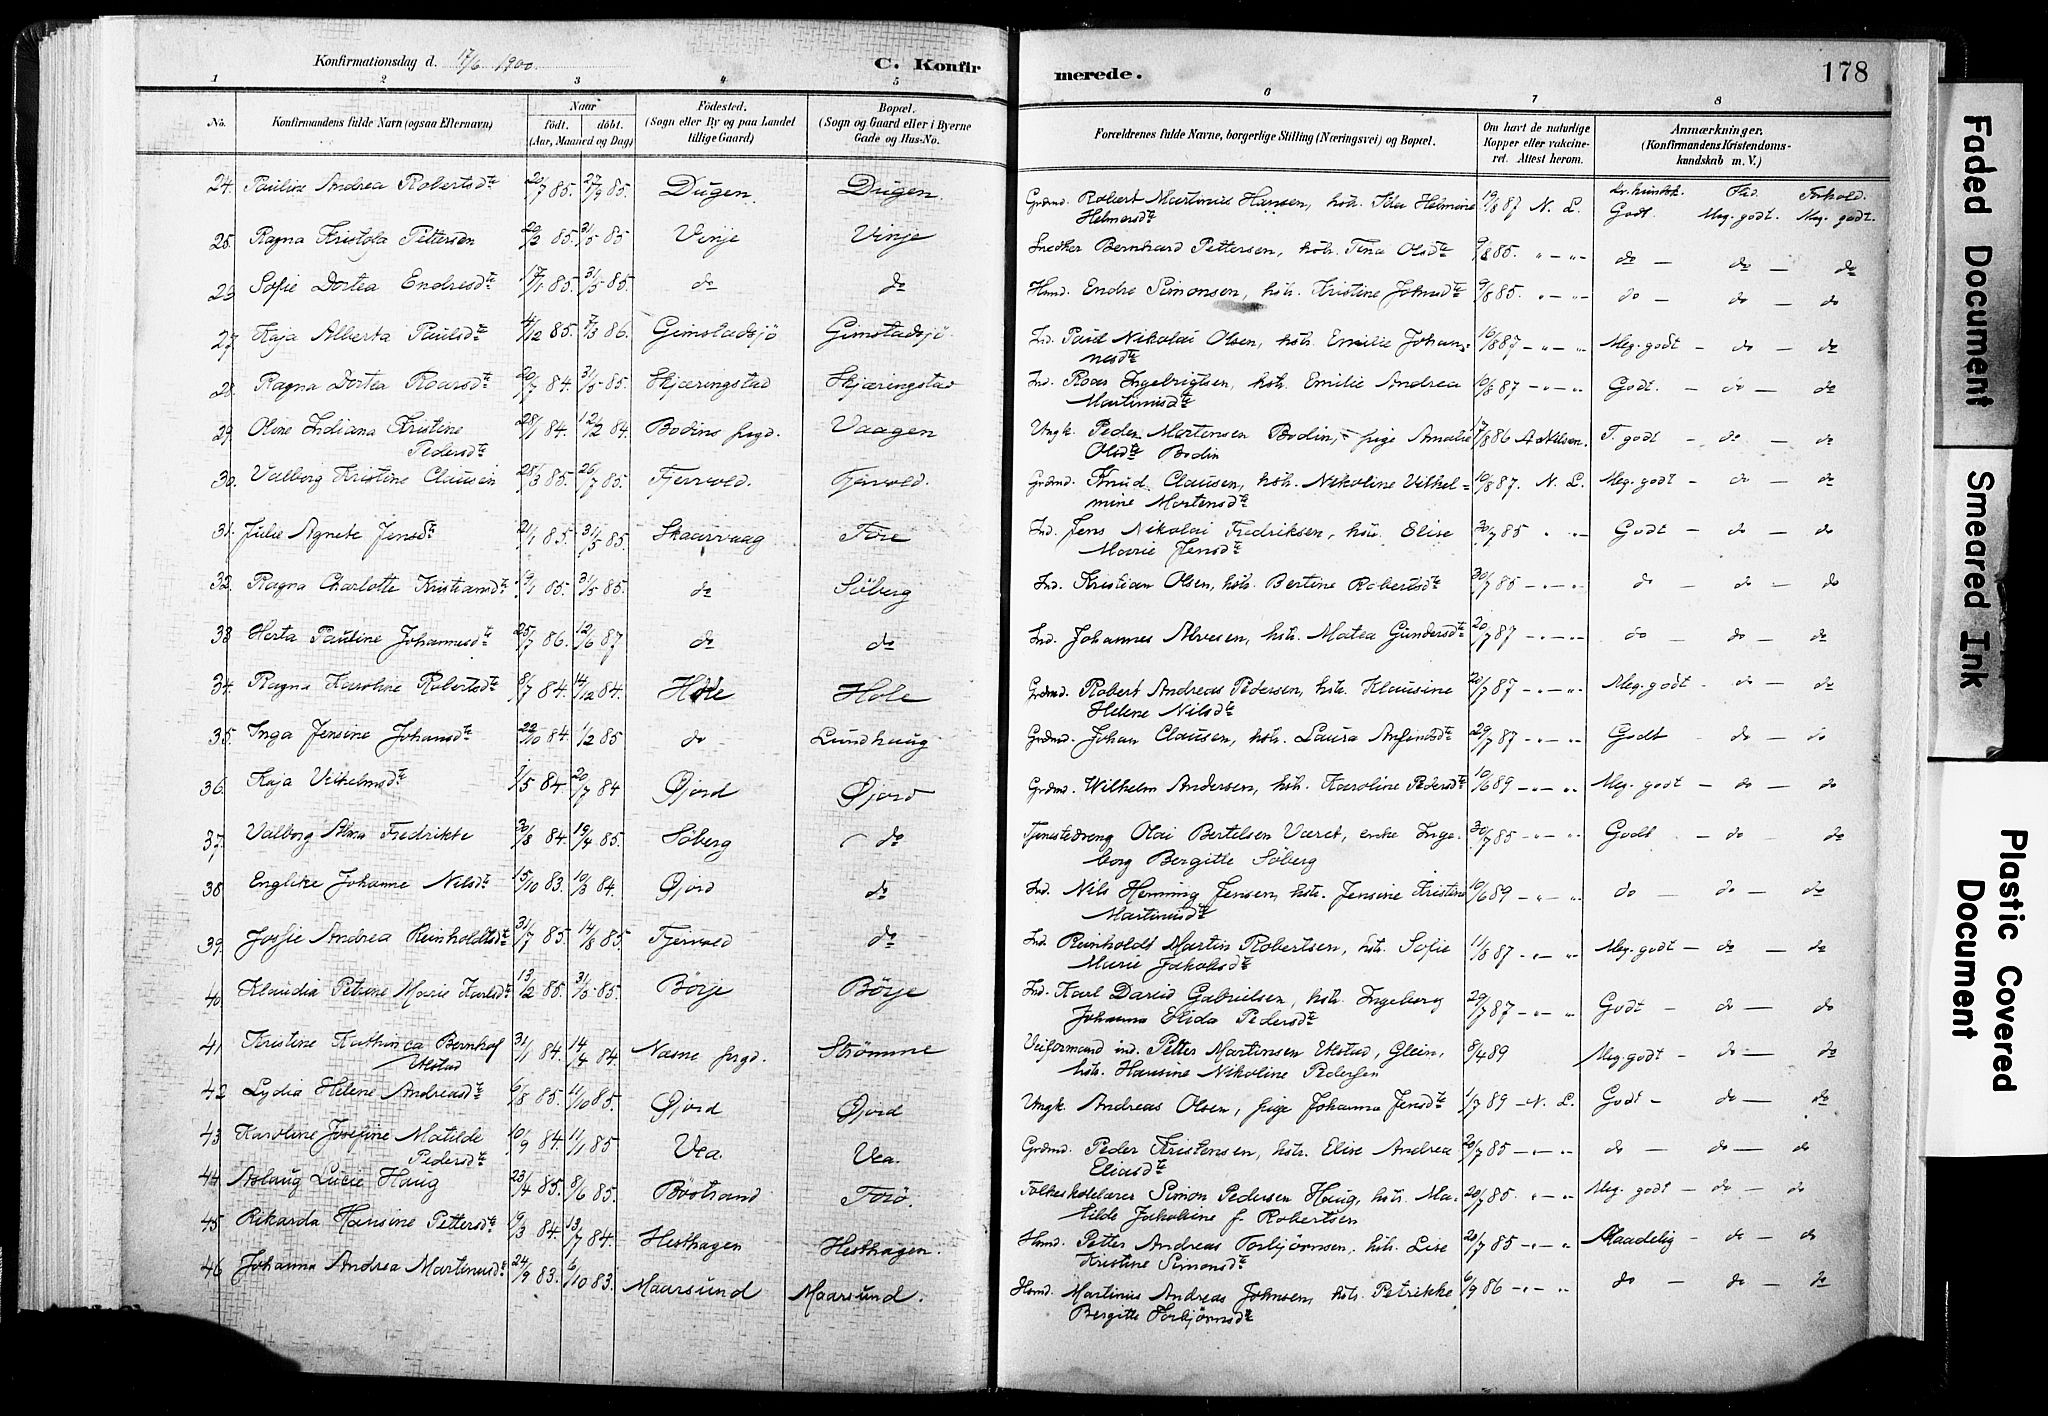 Konfirmationsdag d. 17/6 1900. C. Konfirmerede. 178
1 2 3 4 5 6 7 8
No. Konfirmandens fulde Navn (ogsaa Efternavn) Naar födt. döbt. (Aar, Maaned og Dag) Födested. (Sogn eller By og paa Landet tillige Gaard) Bopæl. (Sogn og Gaard eller i Byerne Gade og Hus-No. Forældrenes fulde Navne, borgerlige Stilling (Næringsvei) og Bopæl. Om havt de naturlige Kopper eller vakcineret. Attest herom. Anmærkninger. (Konfirmandens Kristendomskundskab m. V.)
24. Pauline Andrea Robertsdte 85. 27/9 85. Dugen. Dugen. Grdmd. Robert Martinus Hansen, hstr. Ida Helmine Helmersdte 19/8 87 N. L. Kr.kundsk. Godt. Flid. Meg. godt. Forhold. Meg. godt.
25. Ragna Kristofa Pettersen 20/2 85. 31/5 85 Vinje Vinje Snedker Bernhard Pettersen, hstr. Tina Olsdte 9/8 85. " — " do — do — do
Sofie Dortea Endresdte 17/1 85. 31/5 85. do do Hmd. Endre Simonsen, hstr. Kristine Johnsdte 9/8 85. " — " do — do — do
27. Kaja Alberta Paulsdte 4/12 85. 7/3 86. Gimstadsjö Gimstadsjö Ind. Paul Nikolai Olsen, hstr. Emilie Johannesdte 10/8 87 — " — " Meg. godt — do — do
28. Ragna Dortea Roarsdte 20/7 84. 31/5 85. Skjæringstad Skjæringstad Ind. Roar Ingebrigtsen, hstr. Emilie Andrea Martinusdte 10/8 87 — " — " Godt. — do — do
29. Oline Indiana Kristine Pedersdte 28/1 84. 12/2 84. Bodins prgd. Vaagen Ungk. Peder Mortensen Bodin, pige Amalie Olsdte Bodin 17/8 86 A Nilsen. T. godt — do — do
30. Valborg Kristine Clausen 28/3 85. 26/7 85. Fjervold. Fjervold. Grdmd. Knud Clausen, hstr. Nikoline Vilhelmine Mortensdte 10/8 87. N. L. Meg. godt — do — do
31. Julie Agnete Jensdte 21/1 85. 31/5 85. Skaarvaag Fore Ind. Jens Nikolai Fredriksen, hstr. Elise Marie Jensdte 30/7 85 " " Godt — do — do
32. Ragna Charlotte Kristiansdte 19/1 85. 31/5 85. do Söberg Ind. Kristian Olsen, hstr. Bertine Robertsdte 30/7 85 — " — " do — do — do
33 Herta Pauline Johannesdte 25/7 86. 12/6 87 do do Ind. Johannes Alvesen, hstr. Matea Gundersdte 20/7 87 — " — " do — do — do
34. Ragna Karoline Robertsdte 8/7 84. 14/12 84. Hole Hole Grdmd. Robert Andreas Pedersen, hstr. Klausine Helene Nilsdte 20/7 87 — " — " Meg. godt — do — do
35. Inga Jensine Johansdte 22/10 84. 1/2 85 do Lundhaug Grdmd. Johan Clausen, hstr. Laura Anfindsdte 29/7 87 — " — " Godt — do — do
36. Kaja Vilhelmsdte 1/5 84. 20/7 84 Øjord Øjord Grdmd. Wilhelm Andersen, hstr. Karoline Pedersdte 10/6 89 — " — " Meg. godt — do — do
37. Valborg Alma Fredrikke 30/8 84. 19/4 85. Söberg do Tjenestedreng Olai Bertelsen Været, enke Ingeborg Bergitte Söberg 30/7 85 — " — " Godt — do do
38 Englike Johanne Nilsdte 15/10 83. 10/3 84. Øjord do Ind. Nils Henning Jensen, hstr. Jensine Kristine Martinusdte 10/6 89 — " — " do — do — do
39. Josfie Andrea Reinholdtsdte 31/7 85. 14/8 85. Fjervold do Ind. Reinholdt Martin Robertsen, hstr. Sofie Marie Jakobsdte 11/8 87 — " — " Meg. godt — do — do
40 Klaudia Petrine Marie Karlsdte 13/2 85. 31/5 85. Börje Börje Ind. Karl David Gabrielsen, hstr. Ingeborg Johanna Elida Pedersdte 29/7 87 — " — " Godt — do — do
41 Kristine Kathinca Bernhof Utstad 31/1 84. 14/4 84. Næsne prgd. Strömme Veiformand ind. Petter Martinsen Utstad, Glein, hstr. Hansine Nikoline Pedersen 8/4 89 Meg. godt — do — do
42 Lydia Helene Andreasdte 6/8 85. 11/10 85. Øjord Øjord Ungk. Andreas Olsen, pige Johanna Jensdte 1/7 89 — N. L. Godt — do — do
43 Karoline Josefine Matilde Pedersdte 10/9 84. 11/1 85 Vea. Vea. Grdmd. Peder Kristensen, hstr. Elise Andrea Eliasdte 20/7 85 — " — " do — do — do
44 Aslaug Lucie Haug 23/4 85. 8/6 85. Böstrand Torö. Folkeskolelærer Simon Pedersen Haug, hstr. Matilde Jakobine f. Robertsen 20/7 85. " — " Meg. godt — do — do
45. Rikarda Hansine Pettersdte 19/3 84. 13/7 84. Hesthagen Hesthagen. Hmd. Petter Andreas Torbjörnsen, hstr. Lise Kristine Simonsdte 20/7 85 — " — " Maadelig — do — do
46 Johanna Andrea Martinusdte 24/9 83. 6/10 83. Maarsund Maarsund. Hsmd. Martinus Andreas Johnsen, hstr. Petrikke Bergitte Torbjörnsdte 6/9 86 — " — " do — do — do
Faded Document
Smeared Ink
Plastic Covered Document